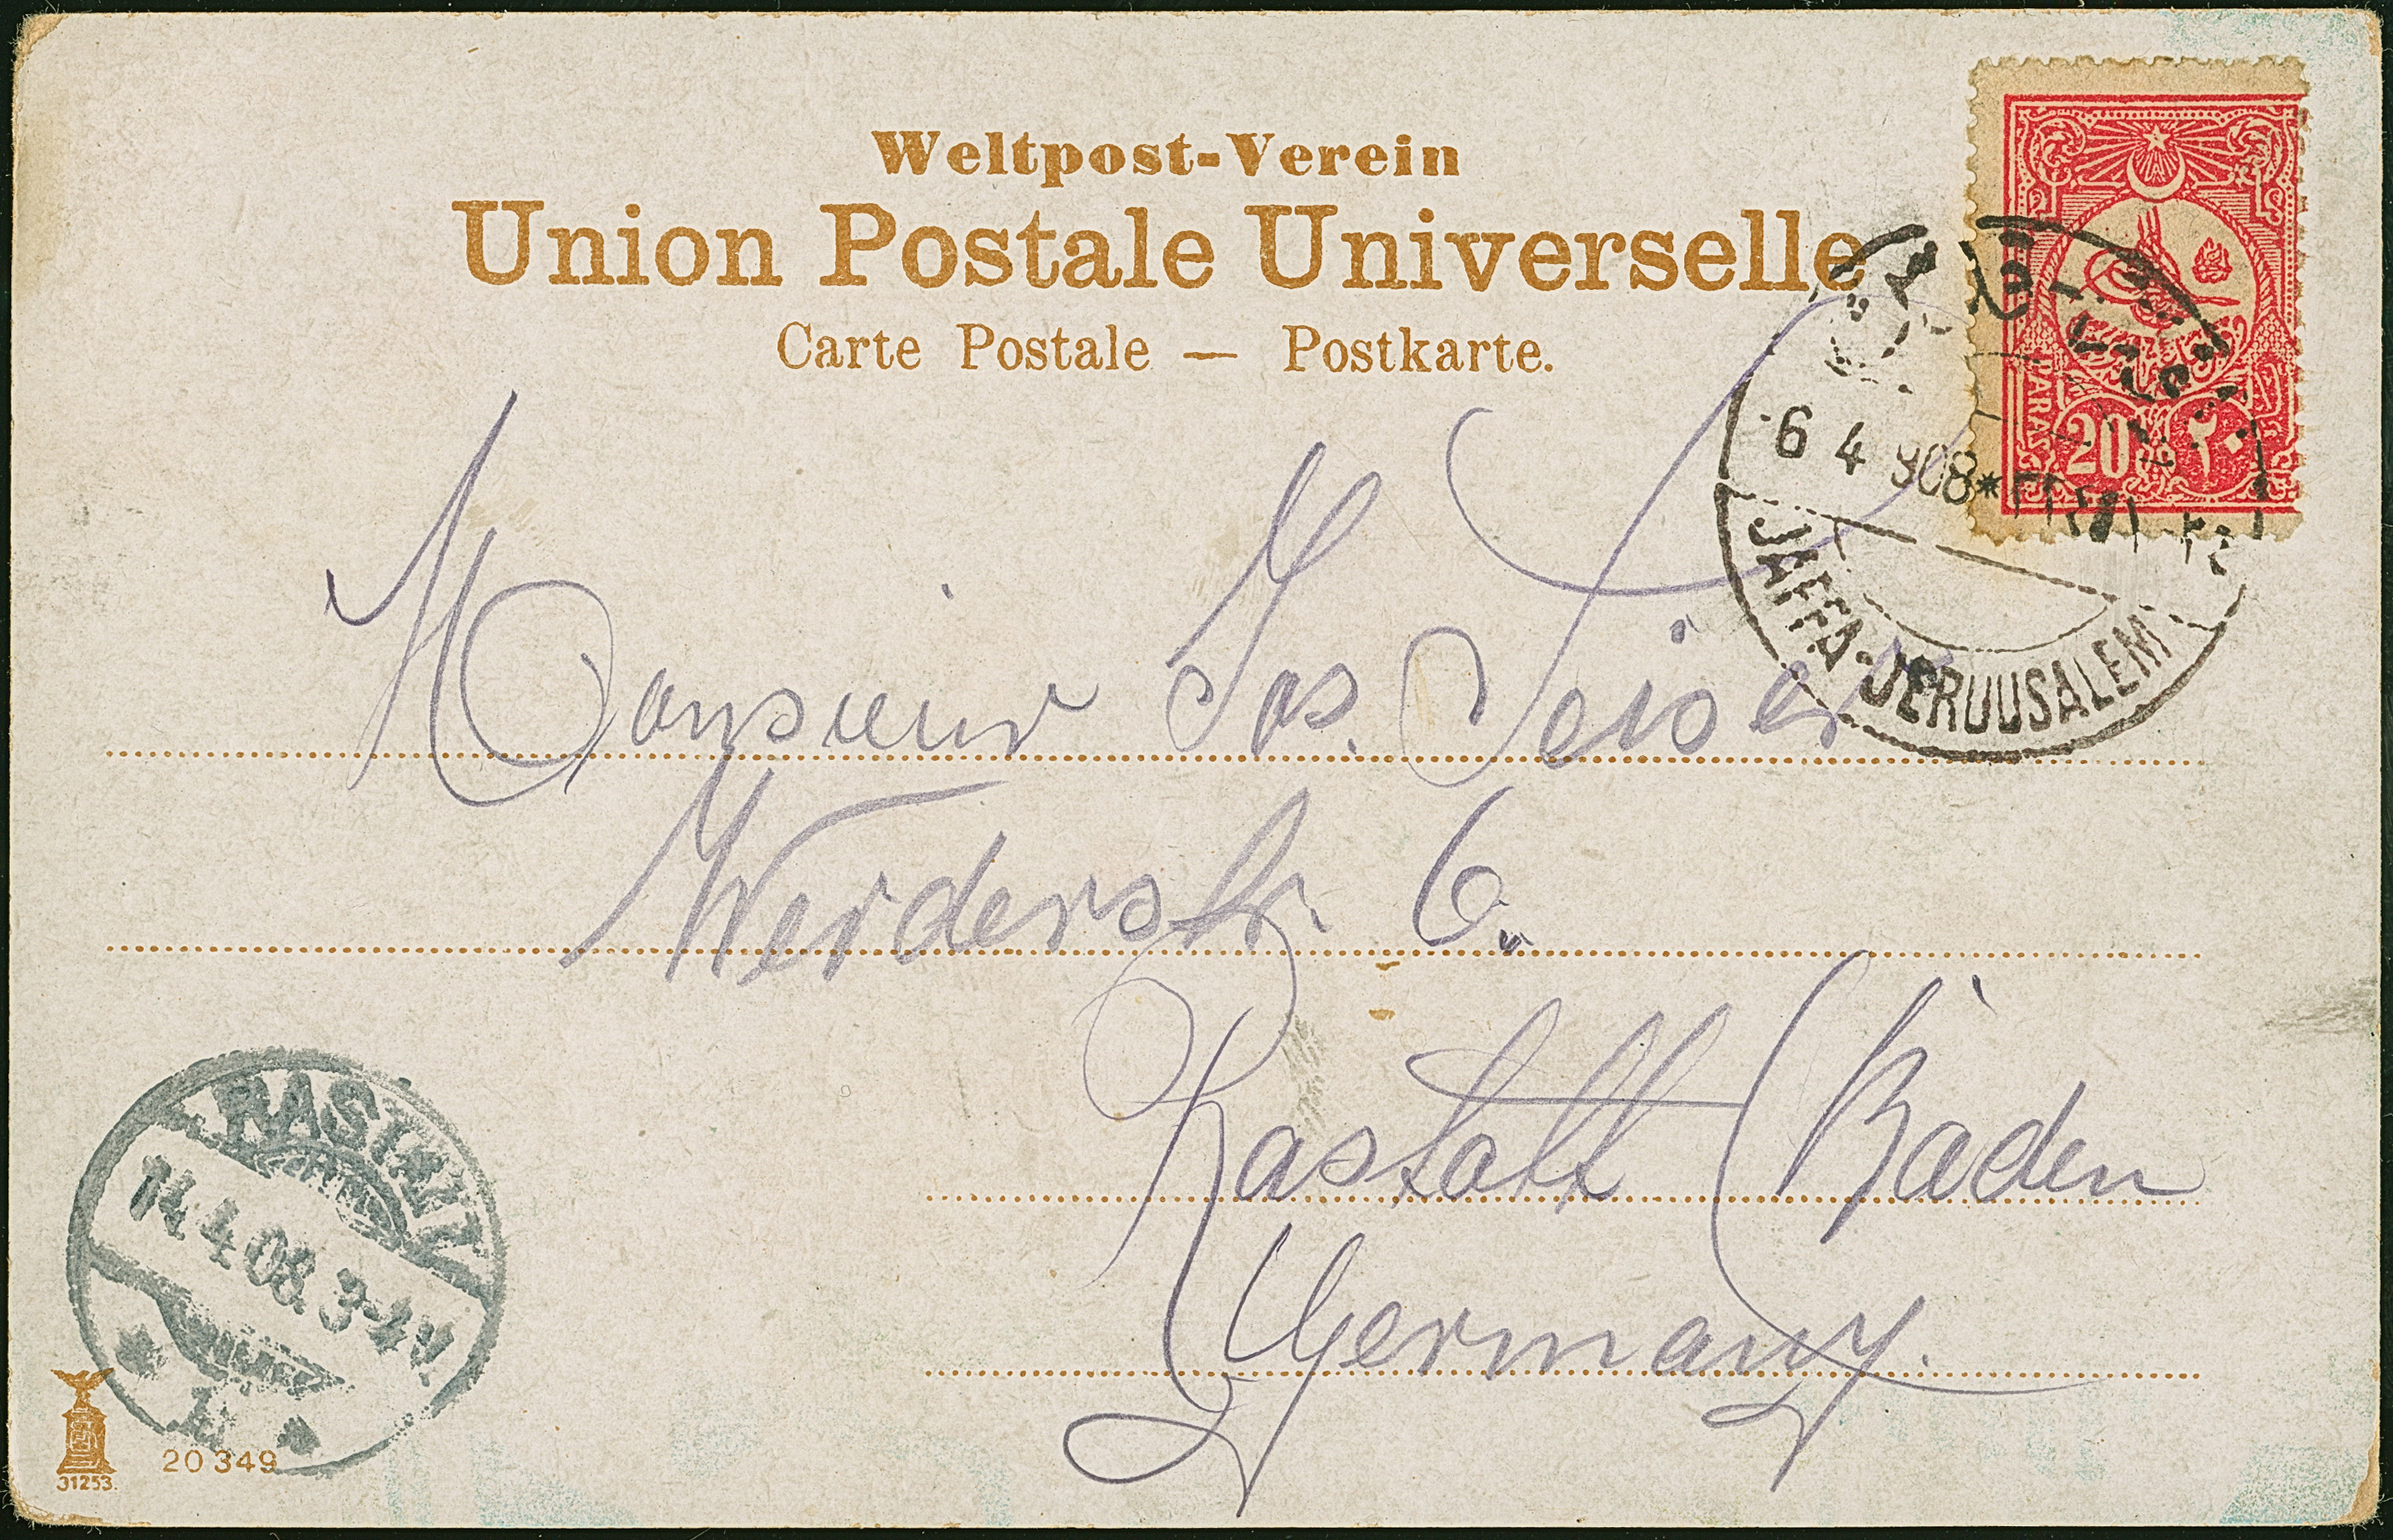 Weltpost-Verein
Union Postale Universelle
Carte Postale — Postkarte.
PARA
20 ٢٠
6 4 908*
JAFFA-JERUUSALEM
Monsieur Jos. Seiser
Werderstr. 6.
Rastatt (Baden
Germany.
RASTATT
11.4.08. 3-4N
20349
31253.